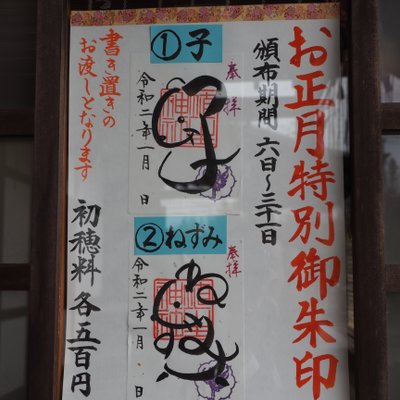 お正月特別御朱印
頒布期間 六日～三十一日
①子
奉拝
子
令和二年一月 日
②ねずみ
奉拝
ねずみ
令和二年一月 日
書き置きの
お渡しとなります
初穂料 各五百円